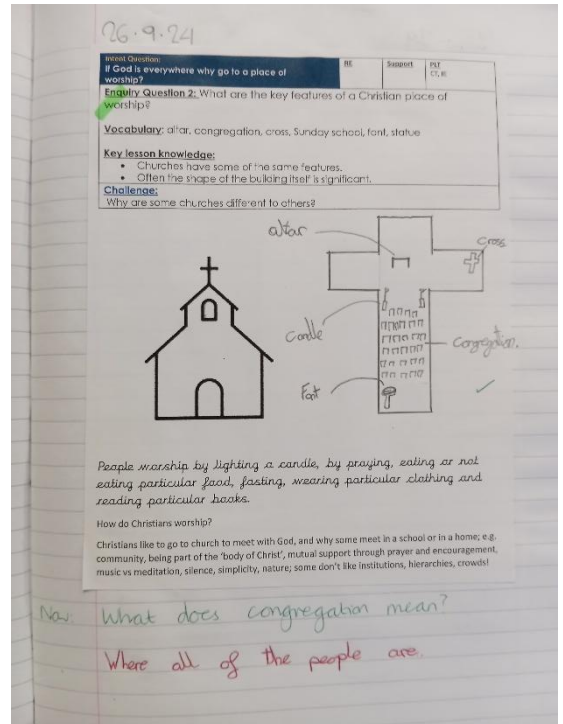 26.9.24
Intent Question:
If God is everywhere why go to a place of
worship?
RE
Support
Enquiry Question 2: What are the key features of a Christian place of
worship?
Vocabulary: altar, congregation, cross, Sunday school, font, statue
Key lesson knowledge:
• Churches have some of the same features.
• Often the shape of the building itself is significant.
Challenge:
Why are some churches different to others?
altar
Cross
Candle
Congregation.
Font
People worship by lighting a candle, by praying, eating or not
eating particular food, fasting, wearing particular clothing and
reading particular books.
How do Christians worship?
Christians like to go to church to meet with God, and why some meet in a school or in a home; e.g.
community, being part of the 'body of Christ', mutual support through prayer and encouragement,
music vs meditation, silence, simplicity, nature; some don't like institutions, hierarchies, crowds!
Now: What does congregation mean?
Where all of the people are.